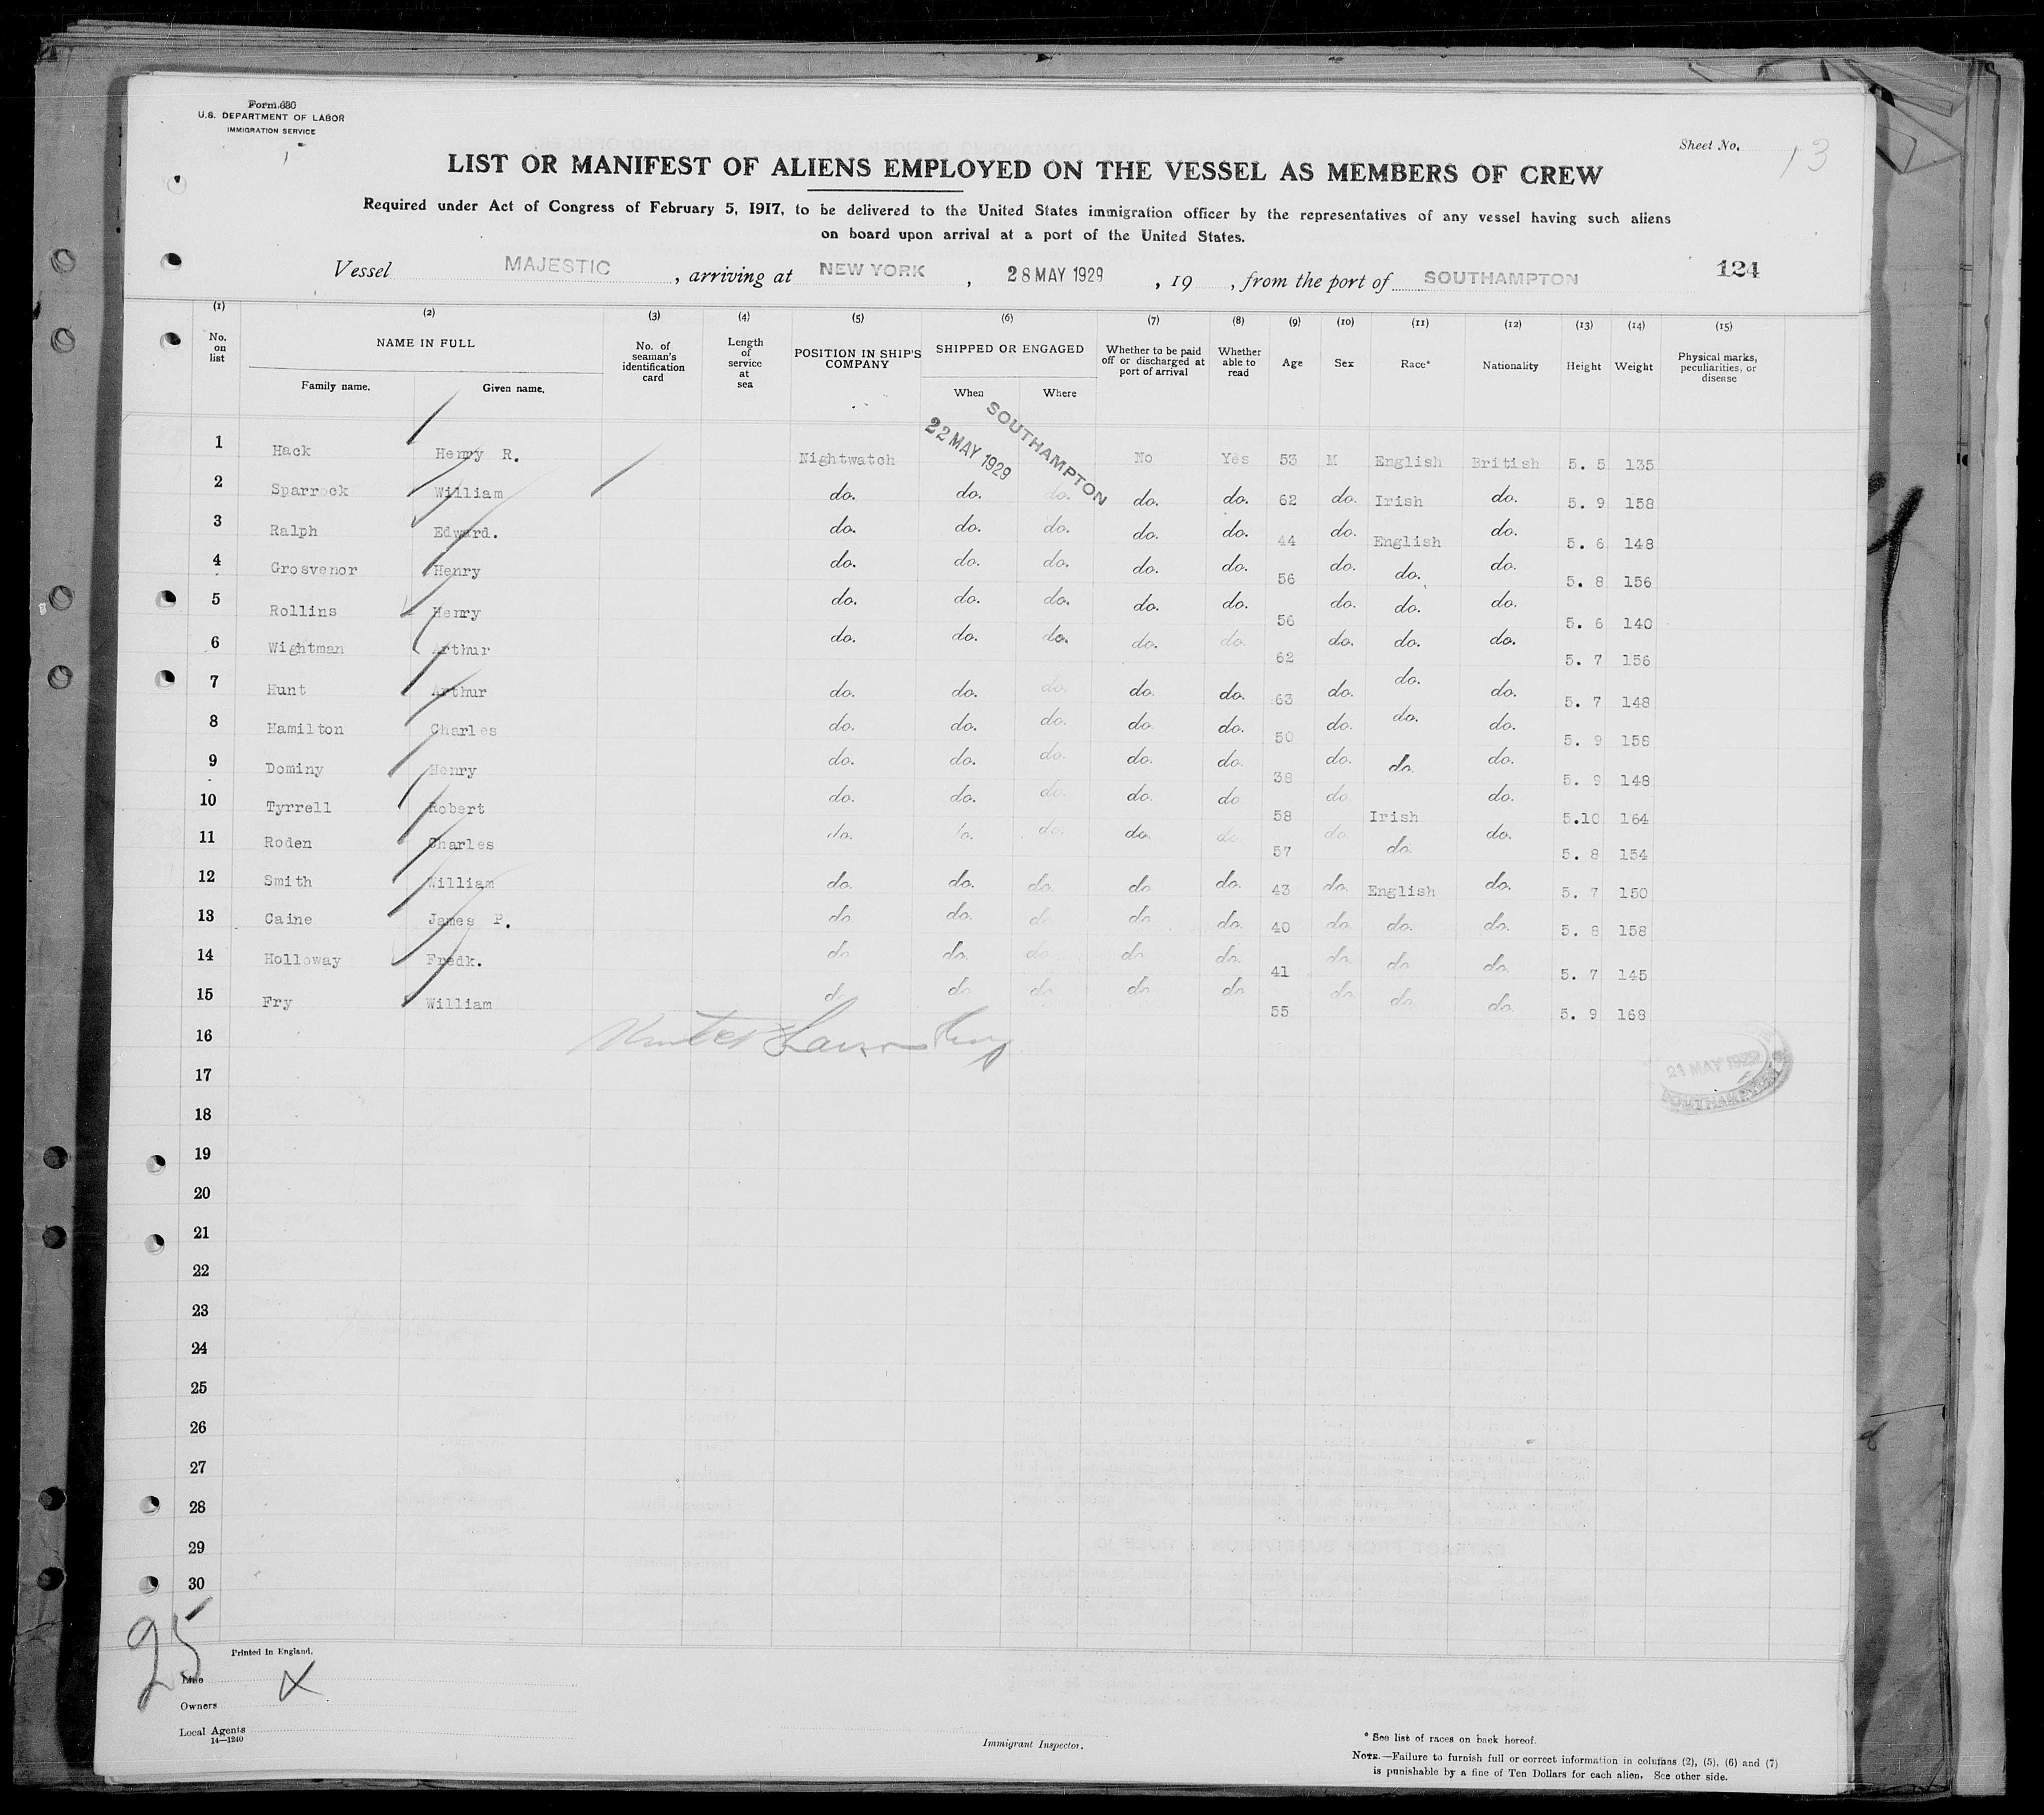 Form 680
U.S. DEPARTMENT OF LABOR
IMMIGRATION SERVICE
Sheet No. 13
LIST OR MANIFEST OF ALIENS EMPLOYED ON THE VESSEL AS MEMBERS OF CREW
Required under Act of Congress of February 5, 1917, to be delivered to the United States immigration officer by the representatives of any vessel having such aliens
on board upon arrival at a port of the United States.
Vessel MAJESTIC, arriving at NEW YORK, 28 MAY 1929, 19 , from the port of SOUTHAMPTON 124
(1) (2) (3) (4) (5) (6) (7) (8) (9) (10) (11) (12) (13) (14) (15)
No. on list NAME IN FULL Family name. Given name. No. of seaman's identification card Length of service at sea POSITION IN SHIP'S COMPANY SHIPPED OR ENGAGED When Where Whether to be paid off or discharged at port of arrival Whether able to read Age Sex Race* Nationality Height Weight Physical marks, peculiarities, or disease
22 MAY 1929 SOUTHAMPTON
1 Hack Henry R. Nightwatch No Yes 53 M English British 5. 5 135
2 Sparrock William do. do. do. do. do. 62 do. Irish do. 5. 9 158
3 Ralph Edward. do. do. do. do. do. 44 do. English do. 5. 6 148
4 Grosvenor Henry do. do. do. do. do. 56 do. do. do. 5. 8 156
5 Rollins Henry do. do. do. do. do. 56 do. do. do. 5. 6 140
6 Wightman Arthur do. do. do. do. do. 62 do. do. do. 5. 7 156
7 Hunt Arthur do. do. do. do. do. 63 do. do. do. 5. 7 148
8 Hamilton Charles do. do. do. do. do. 50 do. do. do. 5. 9 158
9 Dominy Henry do. do. do. do. do. 38 do. do. do. 5. 9 148
10 Tyrrell Robert do. do. do. do. do. 58 do. Irish do. 5.10 164
11 Roden Charles do. do. do. do. do. 57 do. do. do. 5. 8 154
12 Smith William do. do. do. do. do. 43 do. English do. 5. 7 150
13 Caine James P. do. do. do. do. do. 40 do. do. do. 5. 8 158
14 Holloway Fredk. do. do. do. do. do. 41 do. do. do. 5. 7 145
15 Fry William do. do. do. do. do. 55 do. do. do. 5. 9 168
16
17 21 MAY 1929 SOUTHAMPTON
18
19
20
21
22
23
24
25
26
27
28
29
30
25
Printed in England.
Line
Owners
Local Agents
14—1240
Immigrant Inspector.
* See list of races on back hereof.
NOTE.—Failure to furnish full or correct information in columns (2), (5), (6) and (7)
is punishable by a fine of Ten Dollars for each alien. See other side.